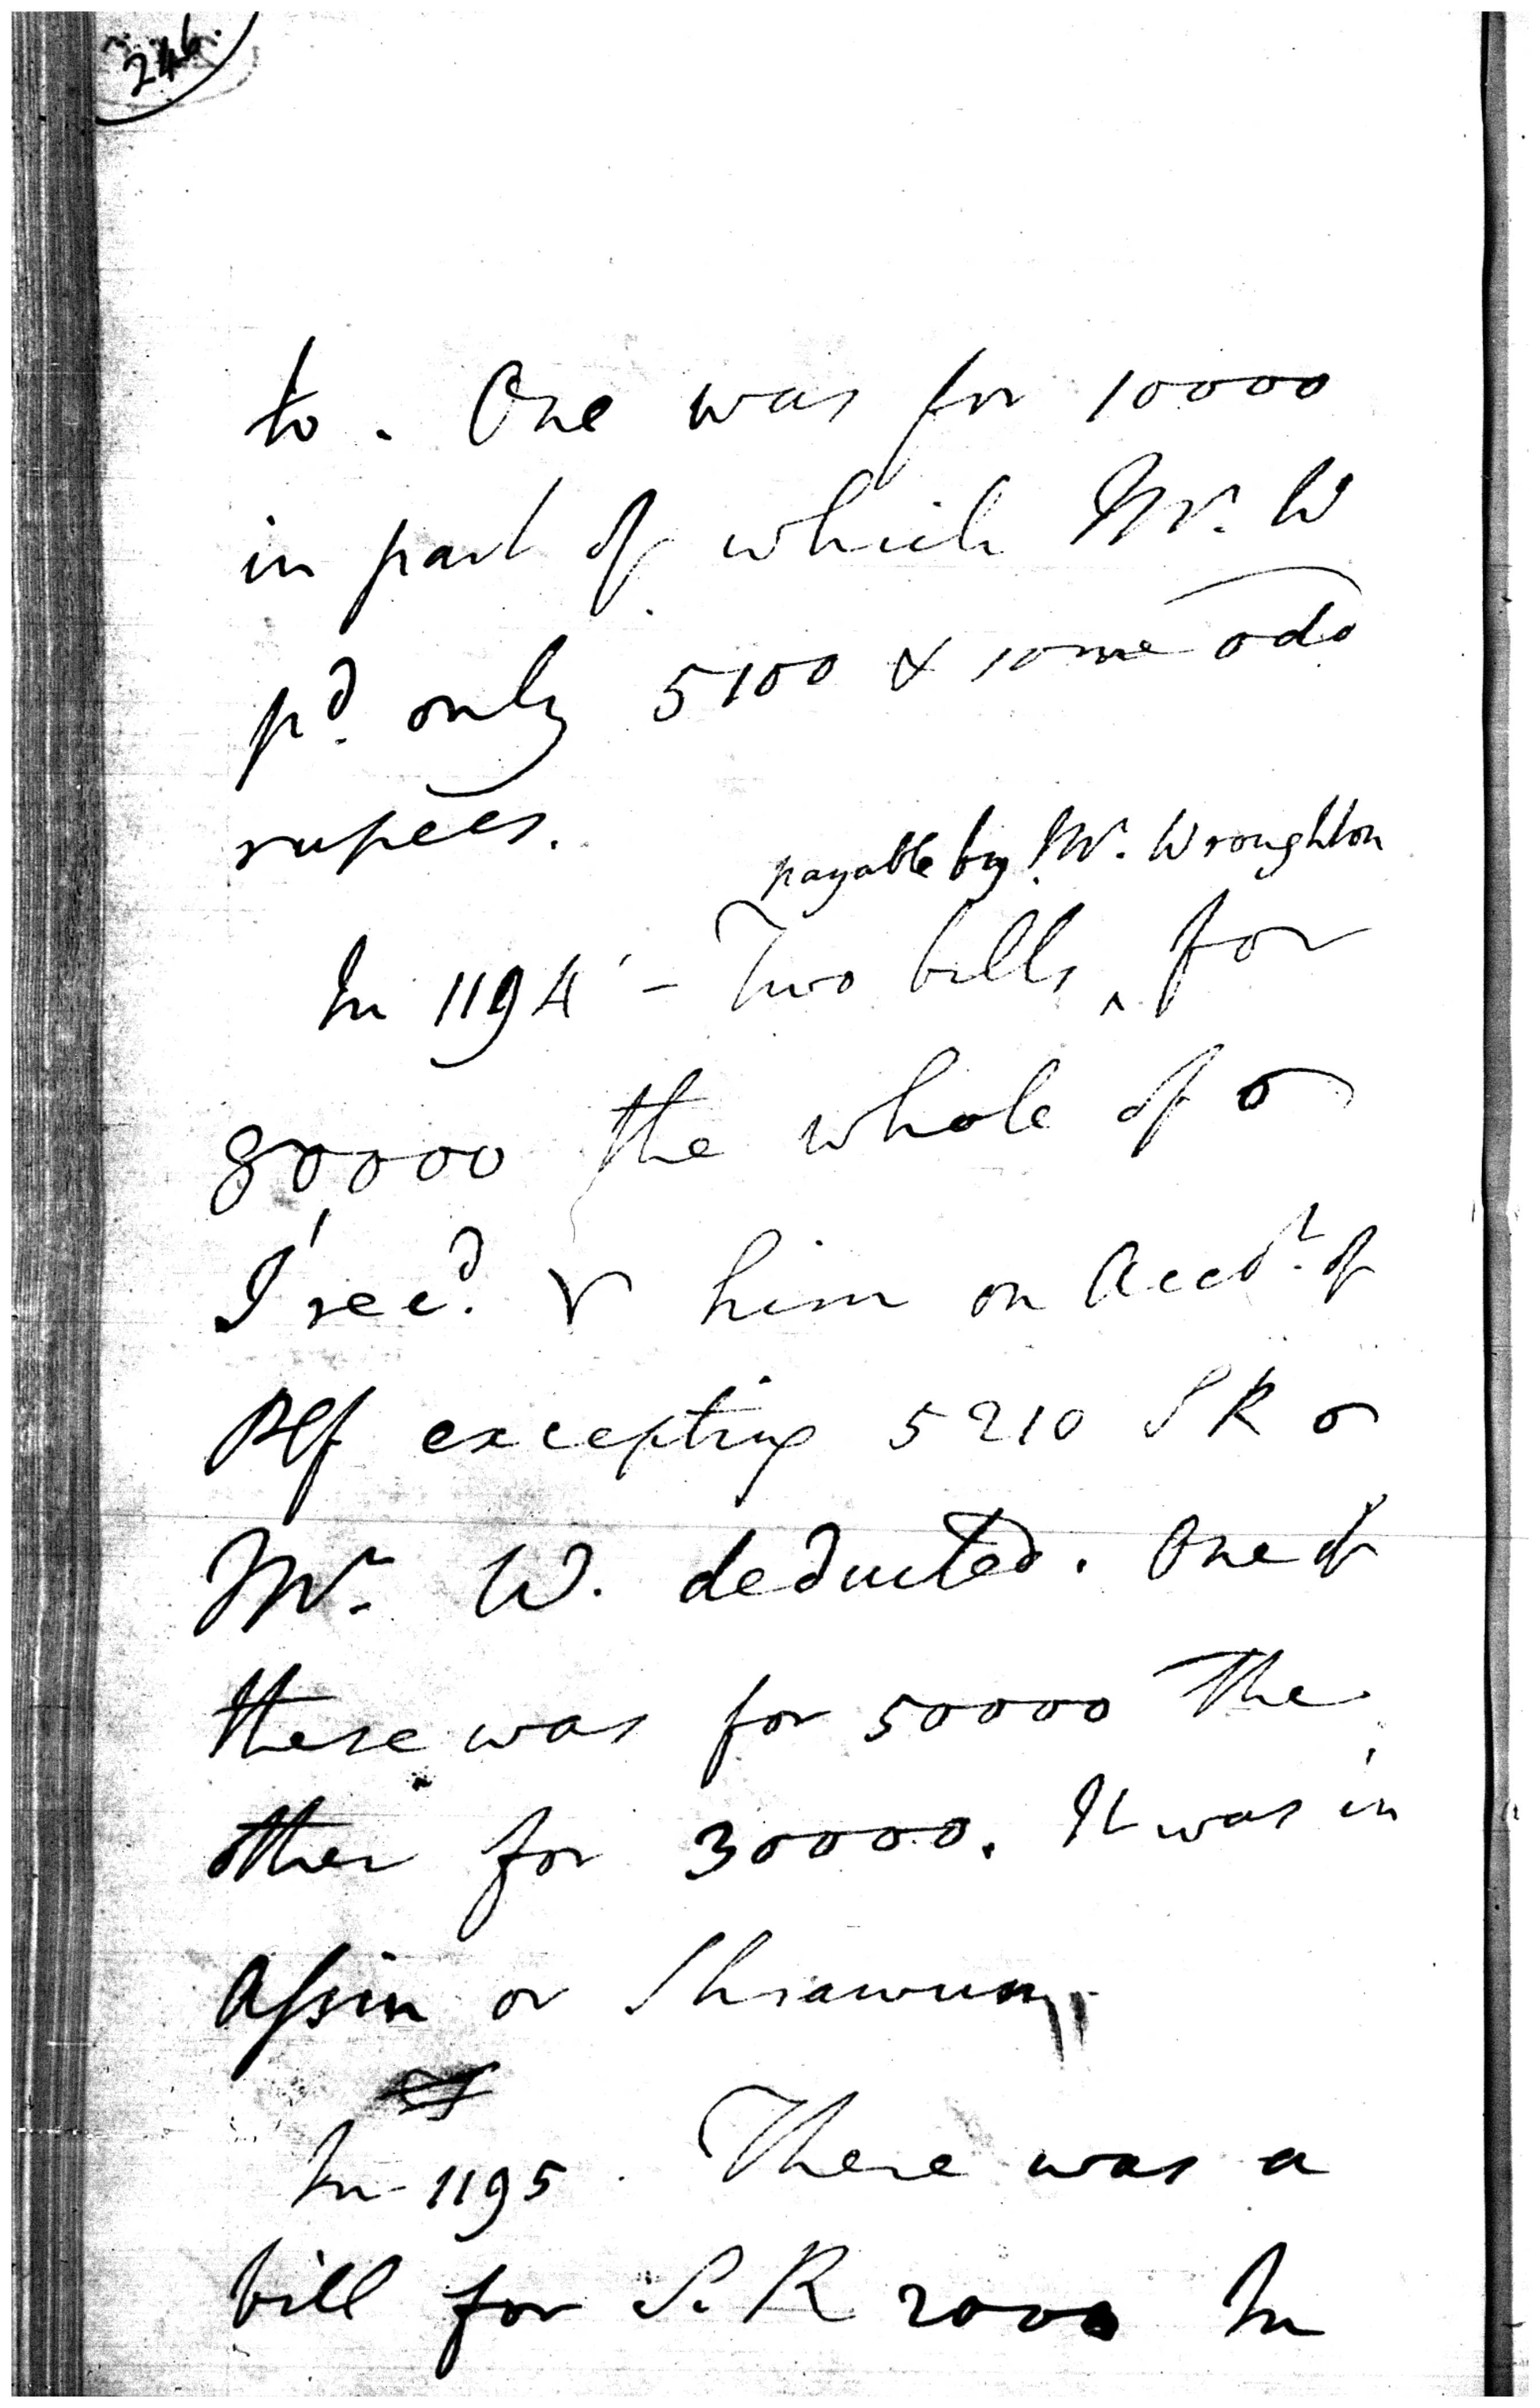 246.
to. One was for 10000
in part of which Mr. W
pd. only 5100 & some odd
rupees.
payable by Mr. Wroughton
In 1194 - Two bills ^ for
80000 the whole of
I recd. him on Acct. of
Plf excepting 5210 S R
Mr. W. deducted. One of
these was for 50000 The
other for 30000. It was in
Assin or Shrawun.
In 1195. There was a
bill for S. R 2000 In